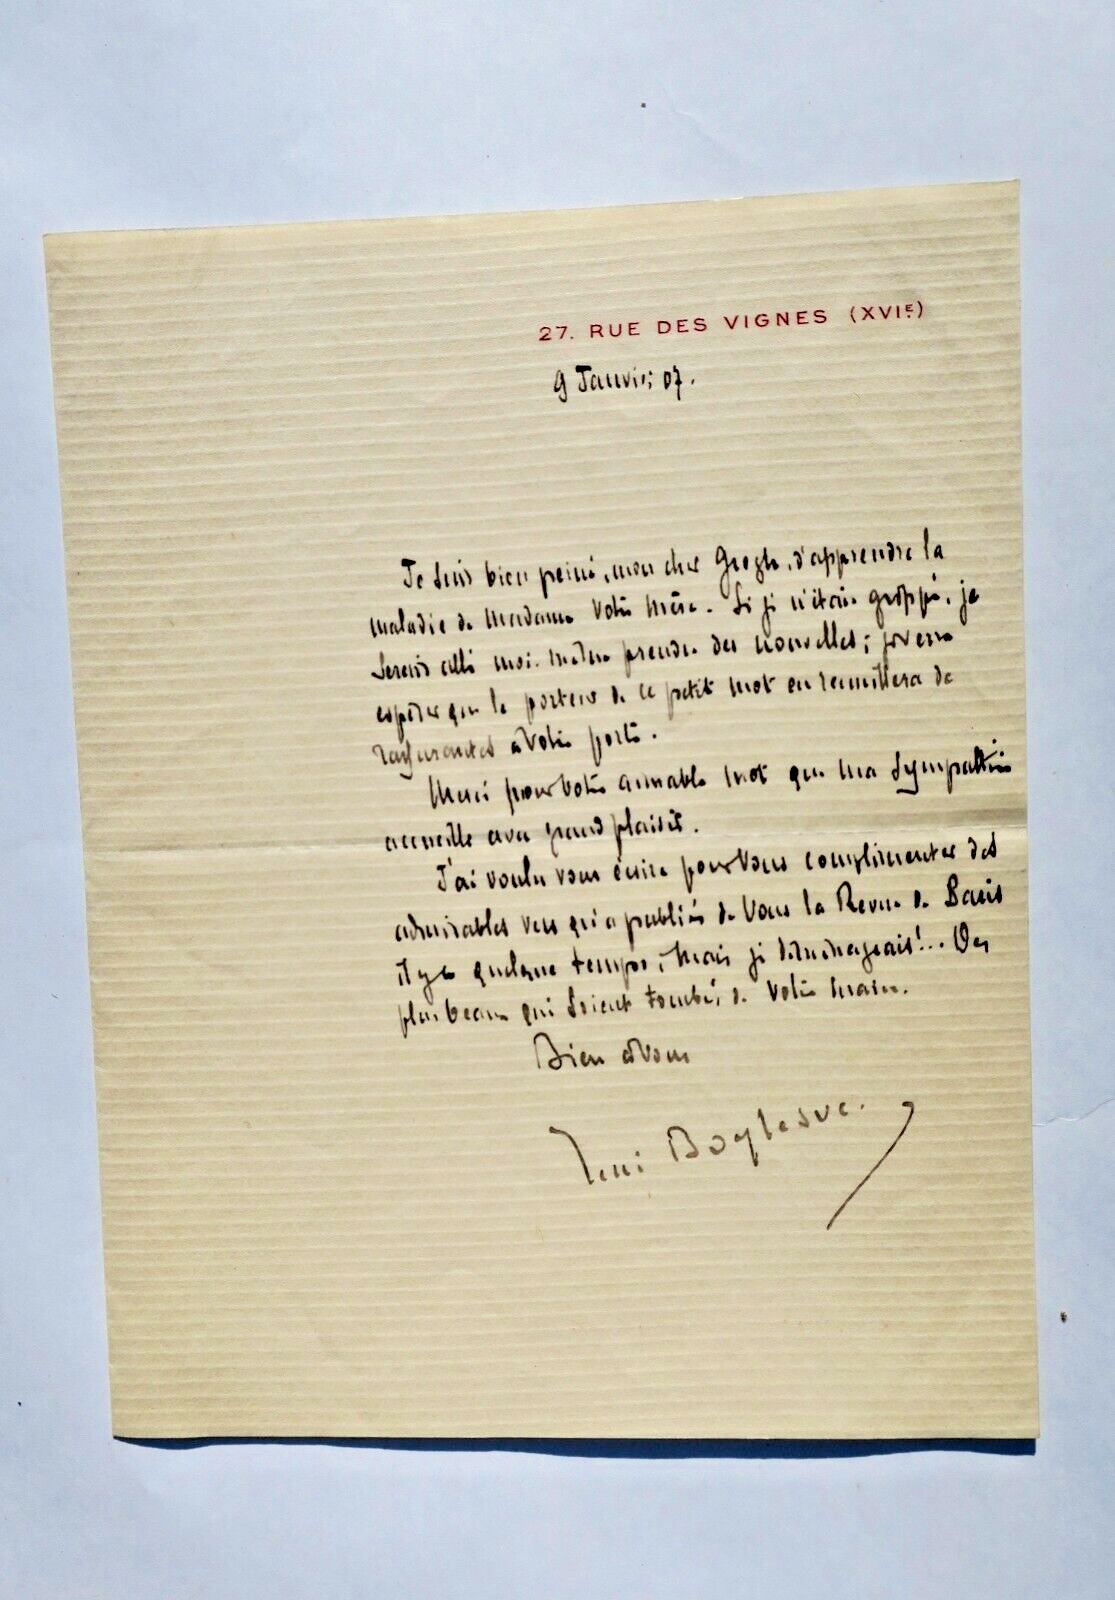 27. RUE DES VIGNES (XVIE)
9 Janvier 07.
Je suis bien peiné, mon cher Gregh, d'apprendre la
maladie de Madame votre mère. Si je n'étais grippé, je
serais allé moi-même prendre des nouvelles; j'ose
espérer que le porteur de ce petit mot en recueillera de
rassurantes à votre porte.
Merci pour votre aimable mot que ma sympathie
accueille avec grand plaisir.
J'ai voulu vous écrire pour vous complimenter des
admirables vers qu'a publiés de vous la Revue de Paris
il y a quelque temps, mais je déménageais!... Des
plus beaux qui soient tombés de votre main.
Bien à vous
René Boylesve.